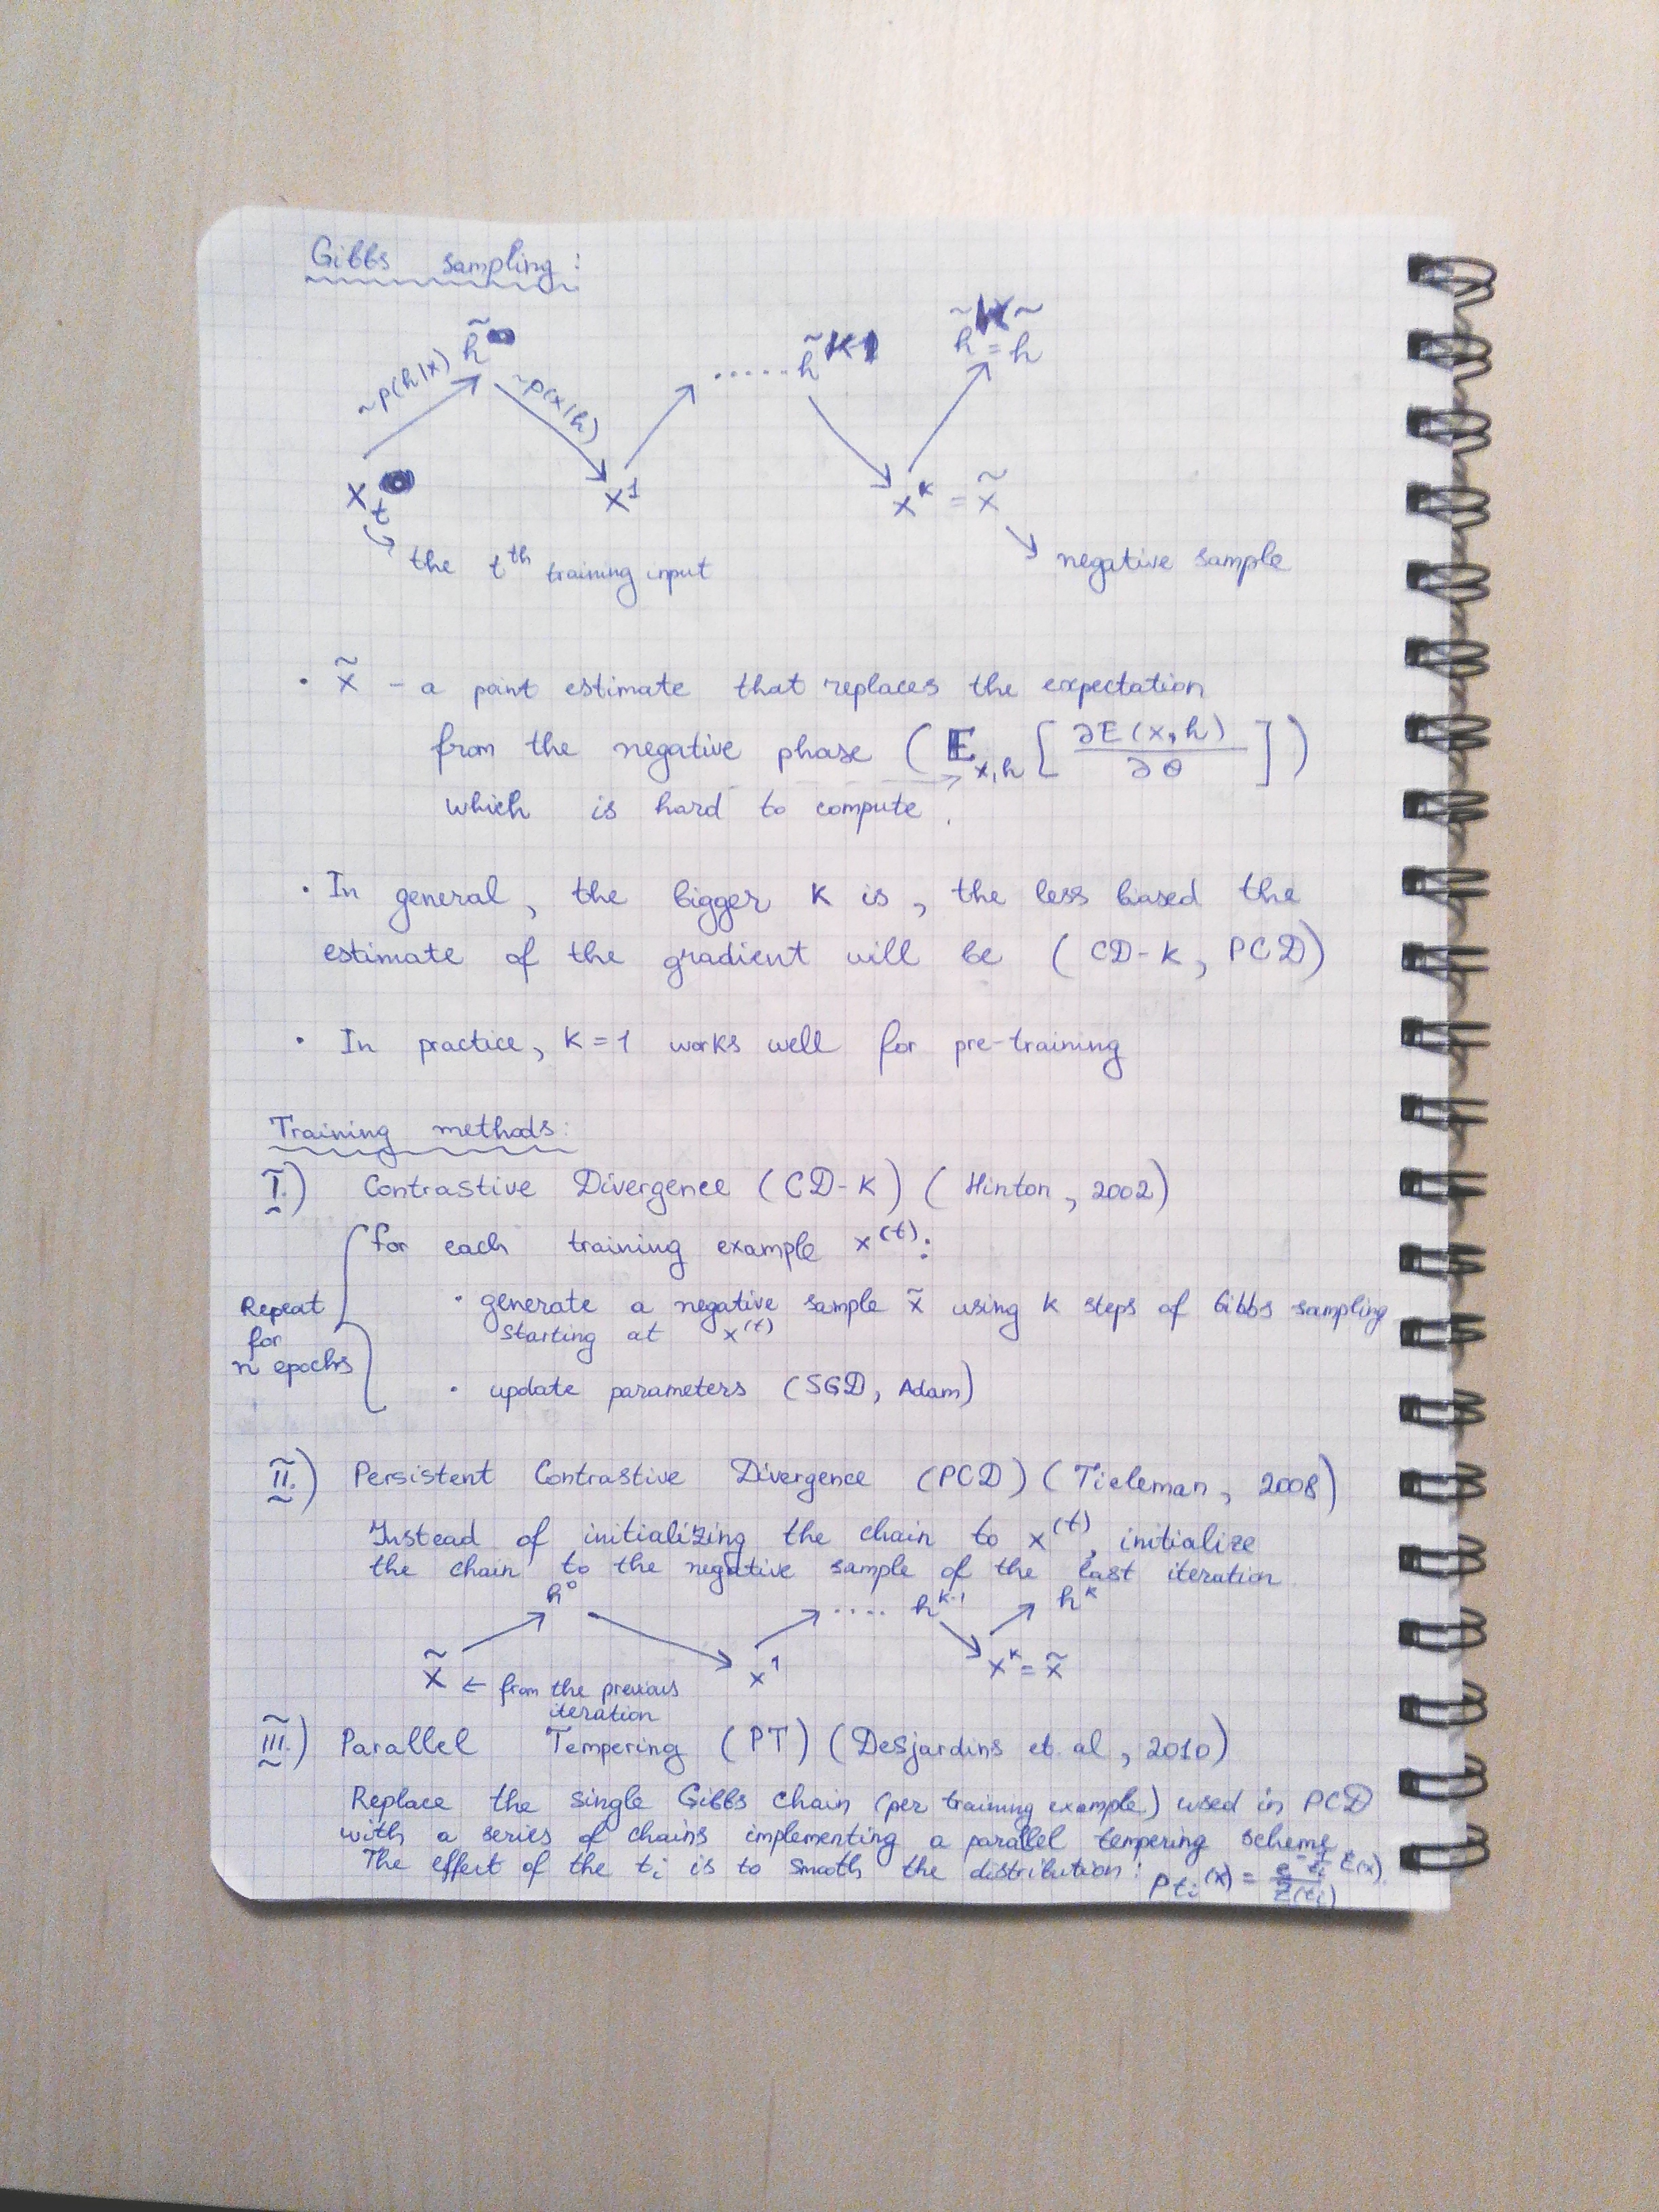 Gibbs sampling:
h̃⁰ ..... h̃ᴷ⁻¹ h̃ᴷ = h̃
~p(h|x) ~p(x|h)
x_t x¹ xᴷ = x̃
the tᵗʰ training input
negative sample
· x̃ - a point estimate that replaces the expectation
from the negative phase (𝔼_x,h [∂E(x,h)/∂θ])
which is hard to compute.
· In general, the bigger K is, the less biased the
estimate of the gradient will be (CD-K, PCD)
· In practice, K=1 works well for pre-training
Training methods:
I.) Contrastive Divergence (CD-K) (Hinton, 2002)
for each training example x⁽ᵗ⁾:
Repeat for n epochs
· generate a negative sample x̃ using K steps of Gibbs sampling
starting at x⁽ᵗ⁾
· update parameters (SGD, Adam)
II.) Persistent Contrastive Divergence (PCD) (Tieleman, 2008)
Instead of initializing the chain to x⁽ᵗ⁾, initialize
the chain to the negative sample of the last iteration
h⁰ .... hᴷ⁻¹ hᴷ
x̃ ← from the previous x¹ xᴷ = x̃
iteration
III.) Parallel Tempering (PT) (Desjardins et. al, 2010)
Replace the single Gibbs chain (per training example) used in PCD
with a series of chains implementing a parallel tempering scheme.
The effect of the tᵢ is to smooth the distribution: p_tᵢ(x) = e^(-1/tᵢ E(x)) / Z(tᵢ)